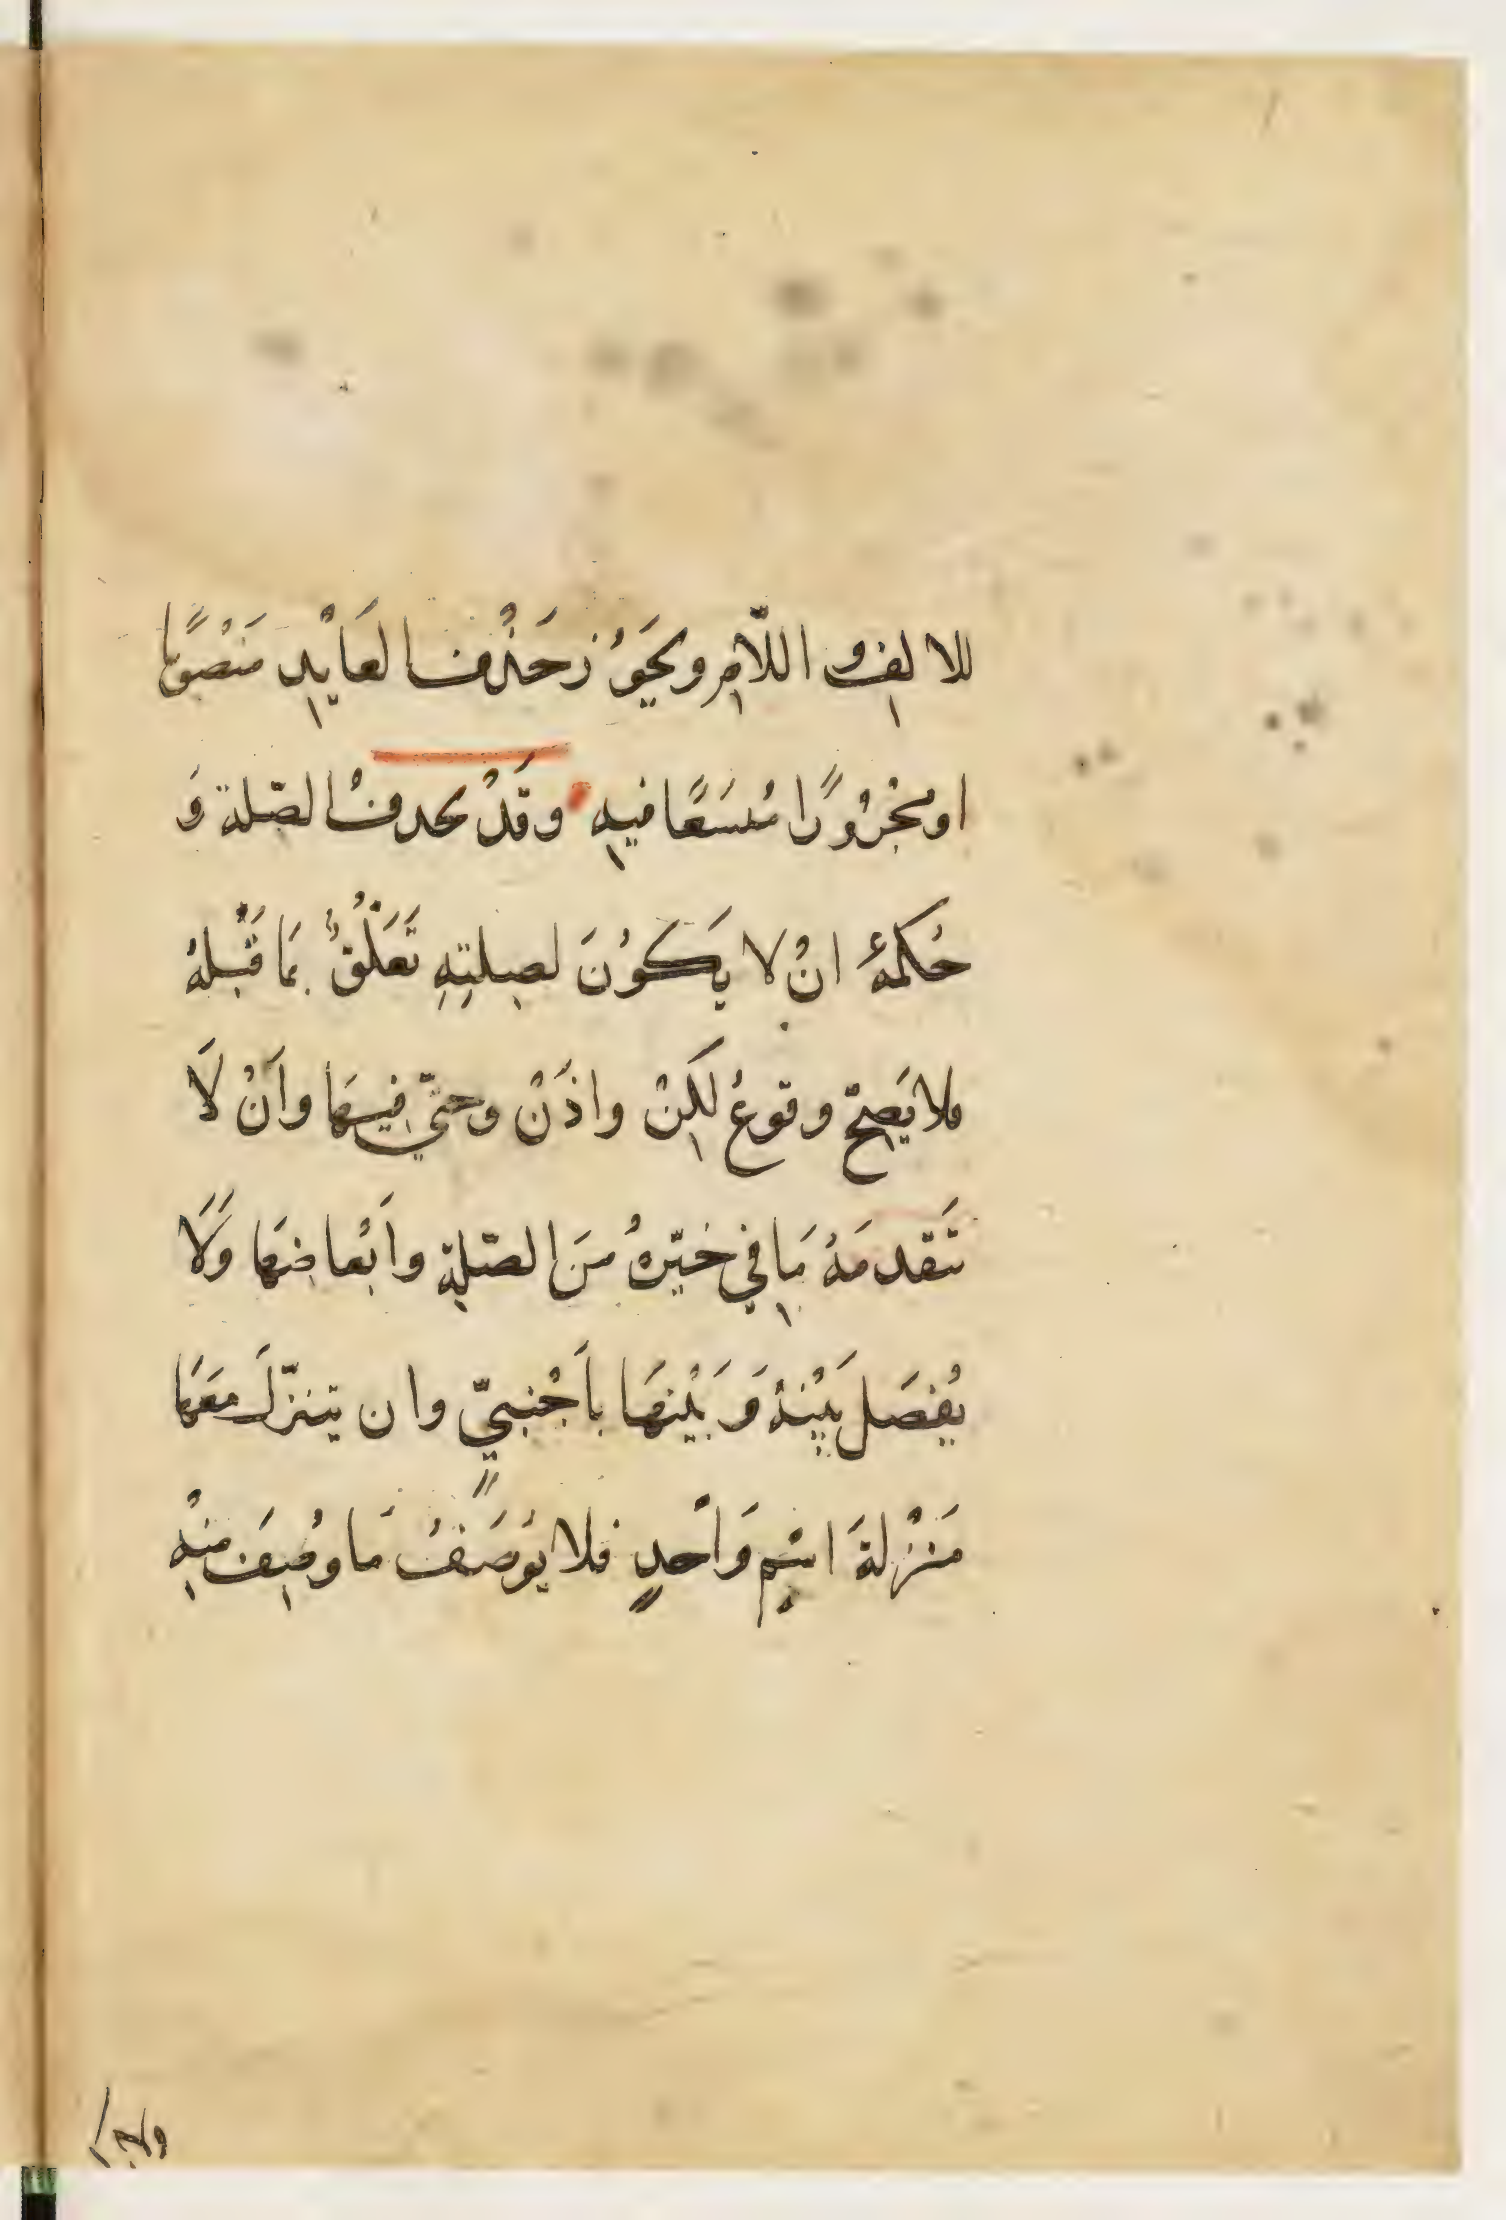 للالِف واللّامِ ويَجوُزُ حَذْفُ العَايْدِ مَنْصُوبًا
او مجْرُورًا مُتسَعًا فيهِ وقَدْ يحدفُ الصّلة وَ
حُكمهُ انْ لا يَكوُنَ لصِلتِهِ تَعَلْقُ بمَا قَبْلهُ
فلا يَصِحّ وقوعُ لكِنْ واذَنْ وحتّي فِيهَا وأنْ لَا
تَقدمَهُ مَا فِي حيّزهُ منَ الصّلةِ وابْعاضِهَا وَلَا
يُفصَل بَيْنهُ وَبَيْنهَا باَجْنبيّ وان يتنزّلَ معَهَا
مَنْزلةَ اسْمٍ وَاْحدٍ فلا يوُصَفُ مَا وُصِفَ منْهِ
ولا